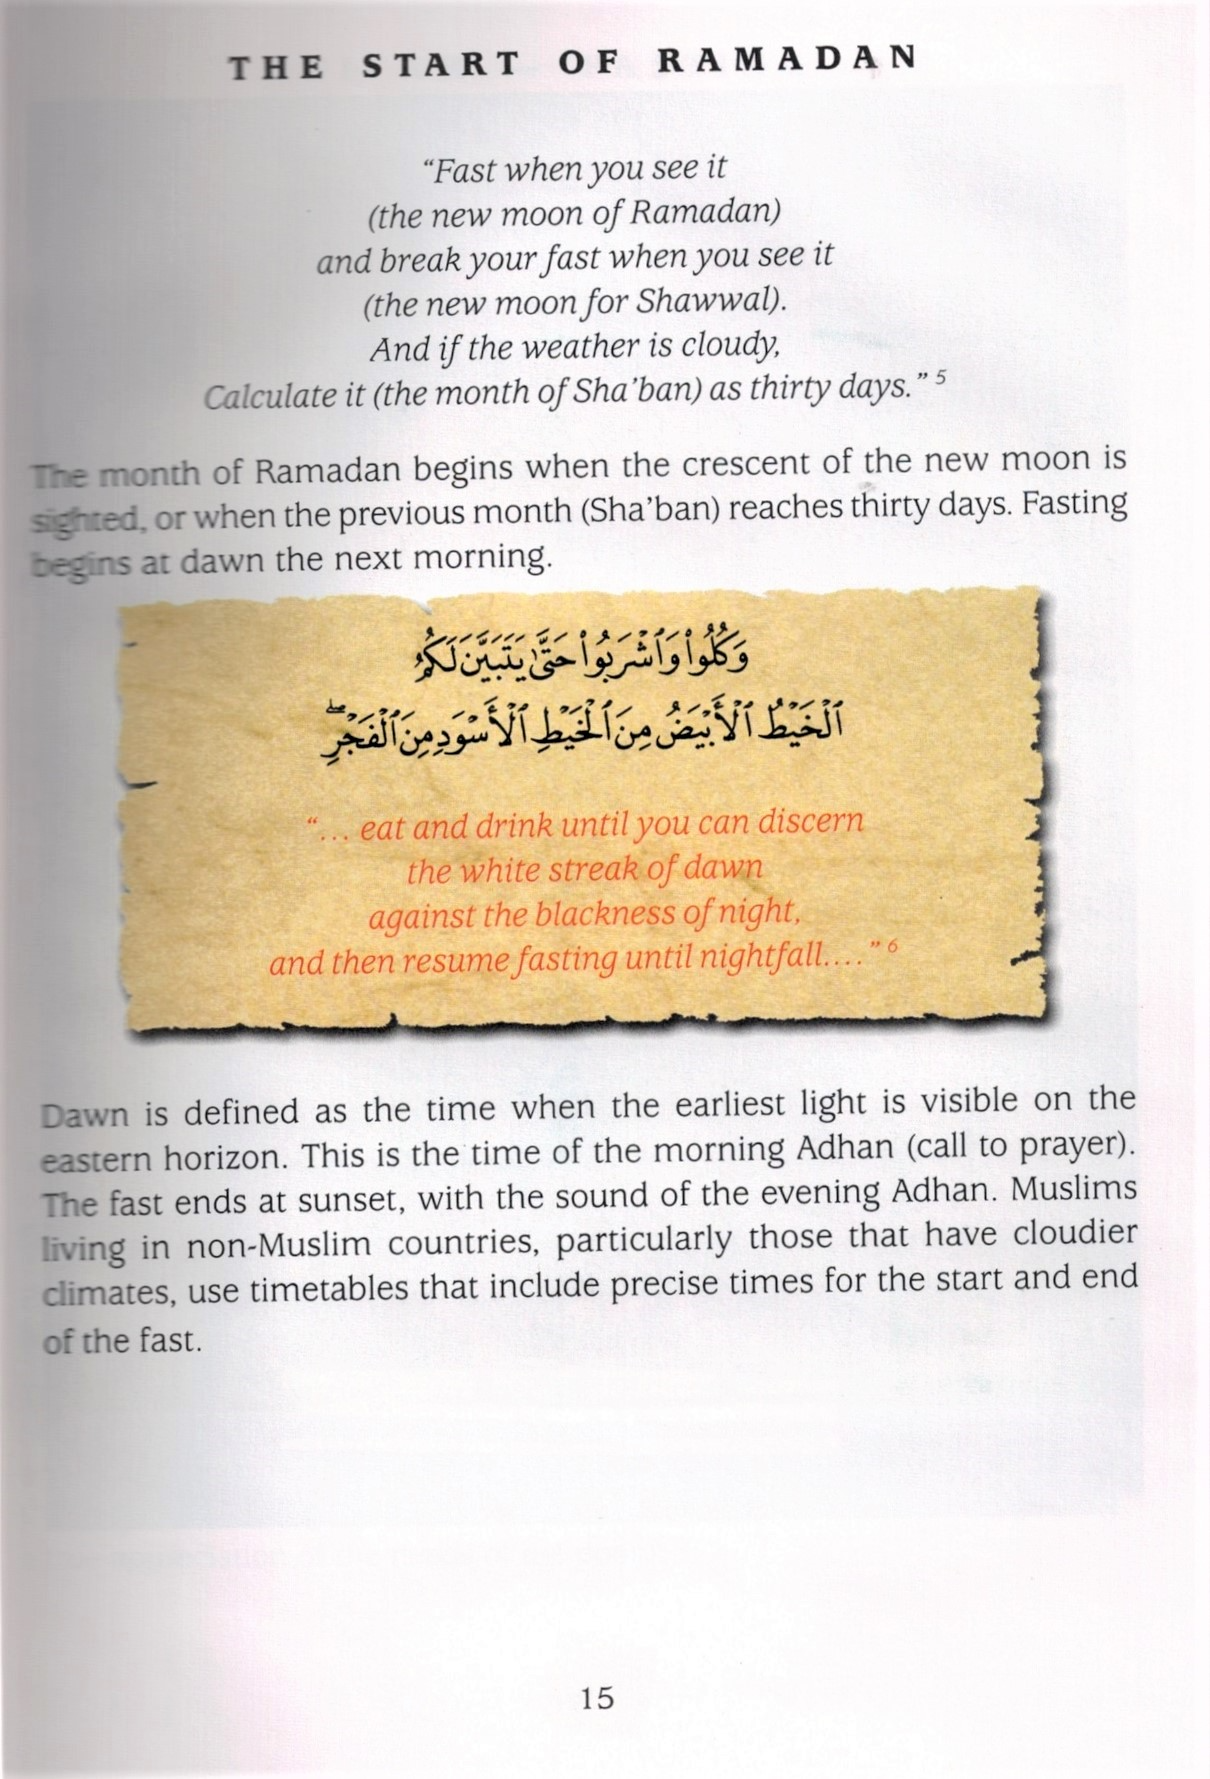 THE START OF RAMADAN
“Fast when you see it
(the new moon of Ramadan)
and break your fast when you see it
(the new moon for Shawwal).
And if the weather is cloudy,
Calculate it (the month of Sha’ban) as thirty days.” 5
The month of Ramadan begins when the crescent of the new moon is
sighted, or when the previous month (Sha’ban) reaches thirty days. Fasting
begins at dawn the next morning.
وَكُلُوا۟ وَٱشْرَبُوا۟ حَتَّىٰ يَتَبَيَّنَ لَكُمُ
ٱلْخَيْطُ ٱلْأَبْيَضُ مِنَ ٱلْخَيْطِ ٱلْأَسْوَدِ مِنَ ٱلْفَجْرِ ۖ
“... eat and drink until you can discern
the white streak of dawn
against the blackness of night,
and then resume fasting until nightfall....” 6
Dawn is defined as the time when the earliest light is visible on the
eastern horizon. This is the time of the morning Adhan (call to prayer).
The fast ends at sunset, with the sound of the evening Adhan. Muslims
living in non-Muslim countries, particularly those that have cloudier
climates, use timetables that include precise times for the start and end
of the fast.
15